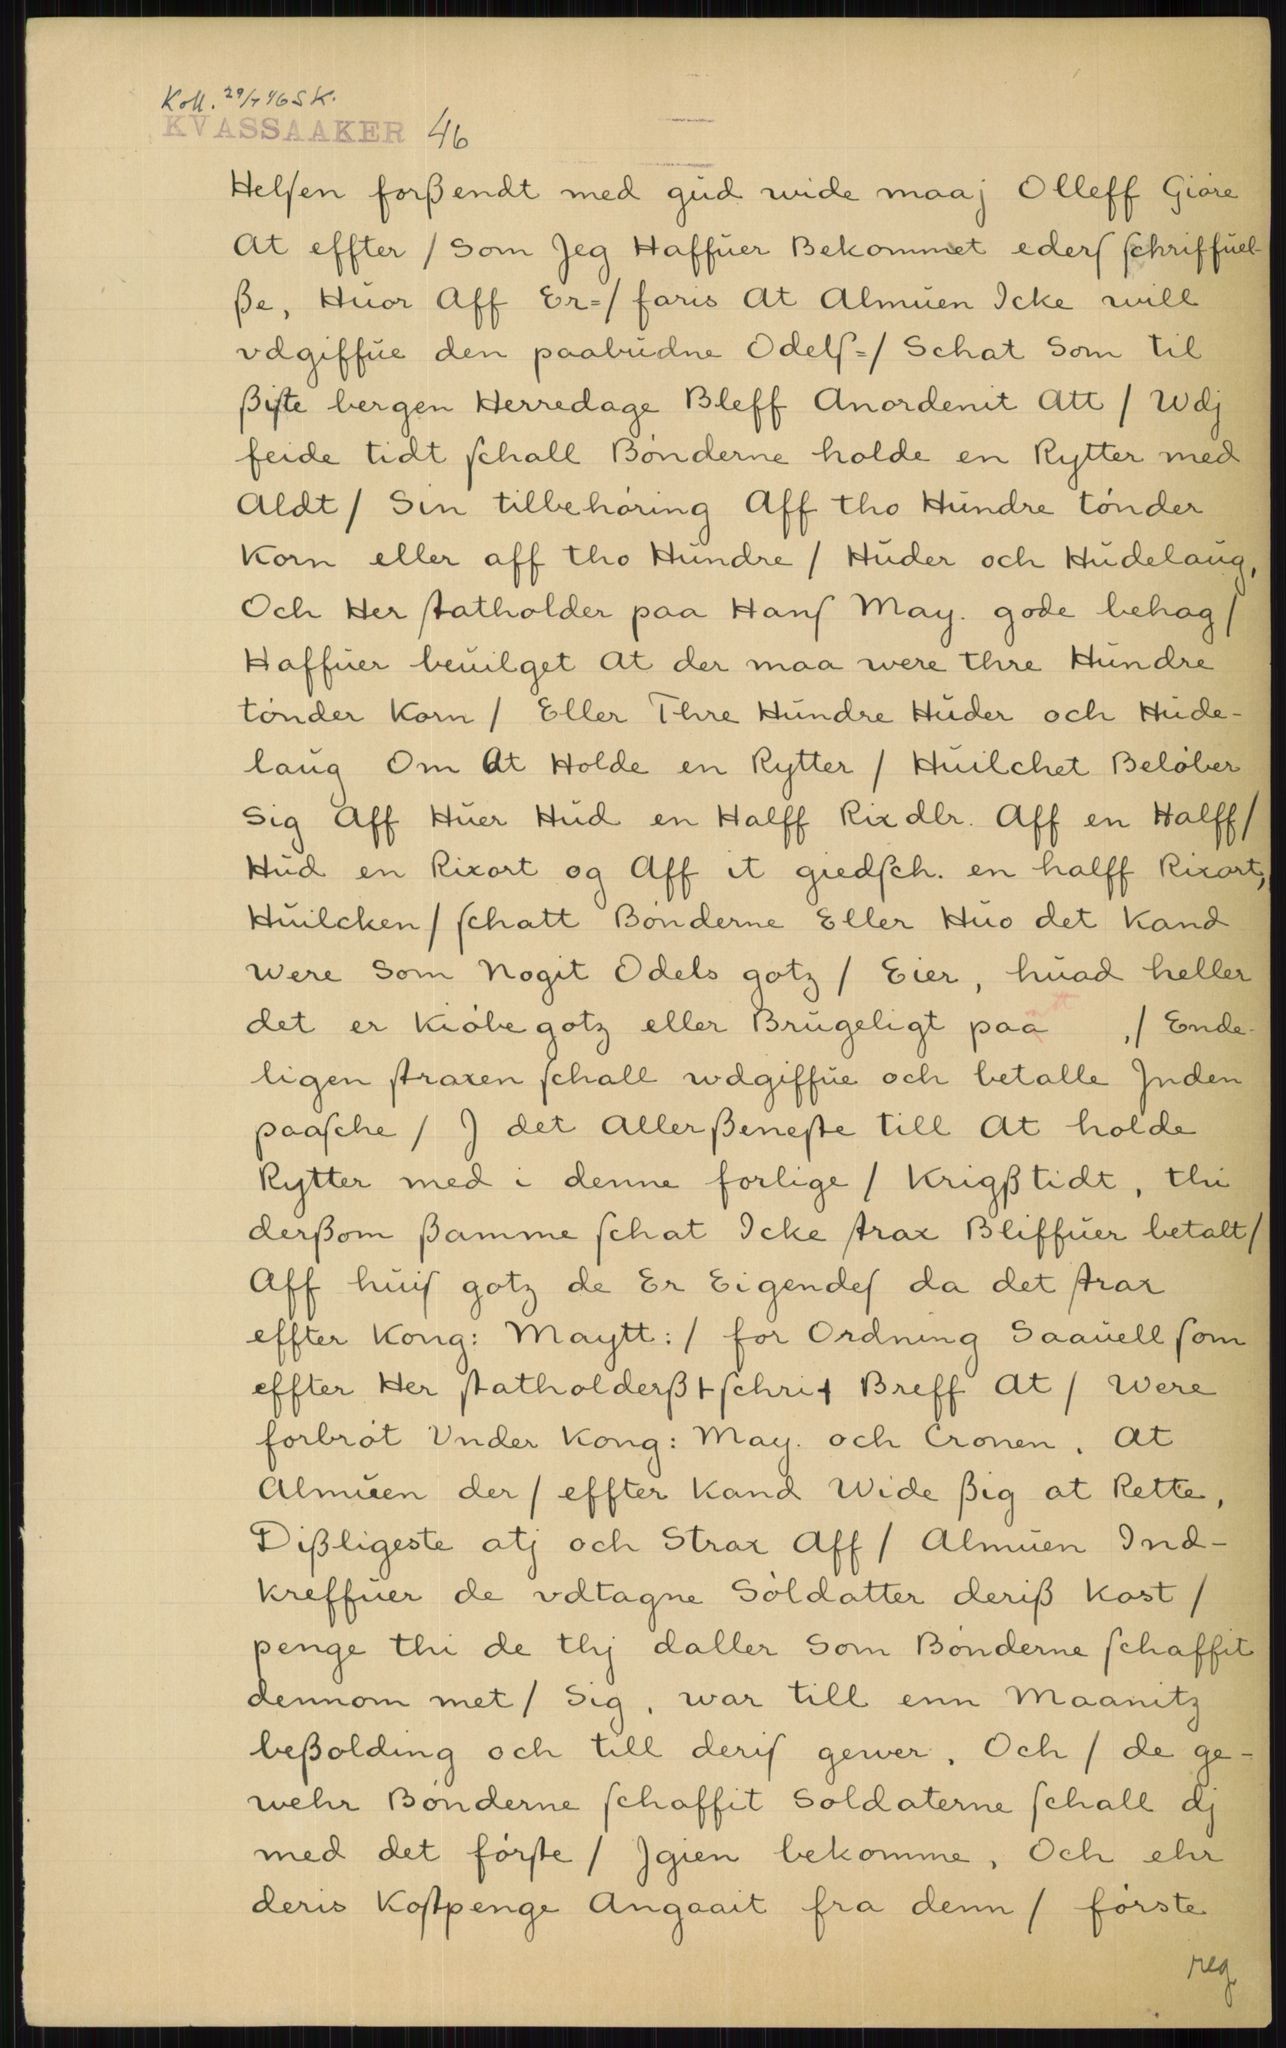 Koll. 29/7 46 S K.
KVASSAAKER 46
Helſen forßendt med gud wide maaj Olleff Gióre
At effter / Som Jeg Haffuer Bekommet ederſ ſchriffuel-
ße, Huor Aff Er=/ faris At Almuen Icke will
vdgiffue den paabudne Odelſ=/ Schat Som til
ßiſte bergen Herredage Bleff Anordenit Att / Wdj
feide tidt ſchall Bónderne holde en Rytter med
Aldt / Sin tilbehóring Aff tho Hundre tónder
Korn eller aff tho Hundre / Huder och Hudelaug,
Och Her ſtatholder paa Hanſ May. gode behag /
Haffuer beuilget At der maa were thre Hundre
tónder Korn / Eller Thre Hundre Huder och Hude-
laug Om At Holde en Rytter / Huilchet Belóber
Sig Aff Huer Hud en Halff Rixdlr. Aff en Halff /
Hud en Rixort og Aff it giedſch. en halff Rixort,
Huilcken / ſchatt Bónderne Eller Huo det Kand
Were Som Nogit Odels gotz / Eier, huad heller
det er Kióbegotz eller Brugeligt paa ,/ Ende-
ligen ſtraxen ſchall udgiffue och betalle Jnden
paaſche / J det Allerßeneſte till At holde
Rytter med i denne forlige / Krigßtidt, thi
derßom ßamme ſchat Icke ſtrax Bliffuer betalt /
Aff huiſ gotz de Er Eigendeſ da det ſtrax
effter Kong: Maytt: / for Ordning Saauell ſom
effter Her ſtatholderß+ſchri+ Breff At / Were
forbrót Vnder Kong: May. och Cronen. At
Almuen der / effter Kand Wide ßig at Rette,
Dißligeste atj och Strax Aff / Almuen Ind-
kreffuer de vdtagne Sóldatter deriß Kost /
penge thi de thj daller Som Bónderne ſchaffit
dennom met / Sig, war till enn Maanitz
beßolding och till deriſ gewer. Och / de ge-
wehr Bónderne ſchaffit Soldaterne ſchall dj
med det fórſte / Jgien bekomme, Och ehr
deris Koſtpenge Angaait fra denn / fórste
reg